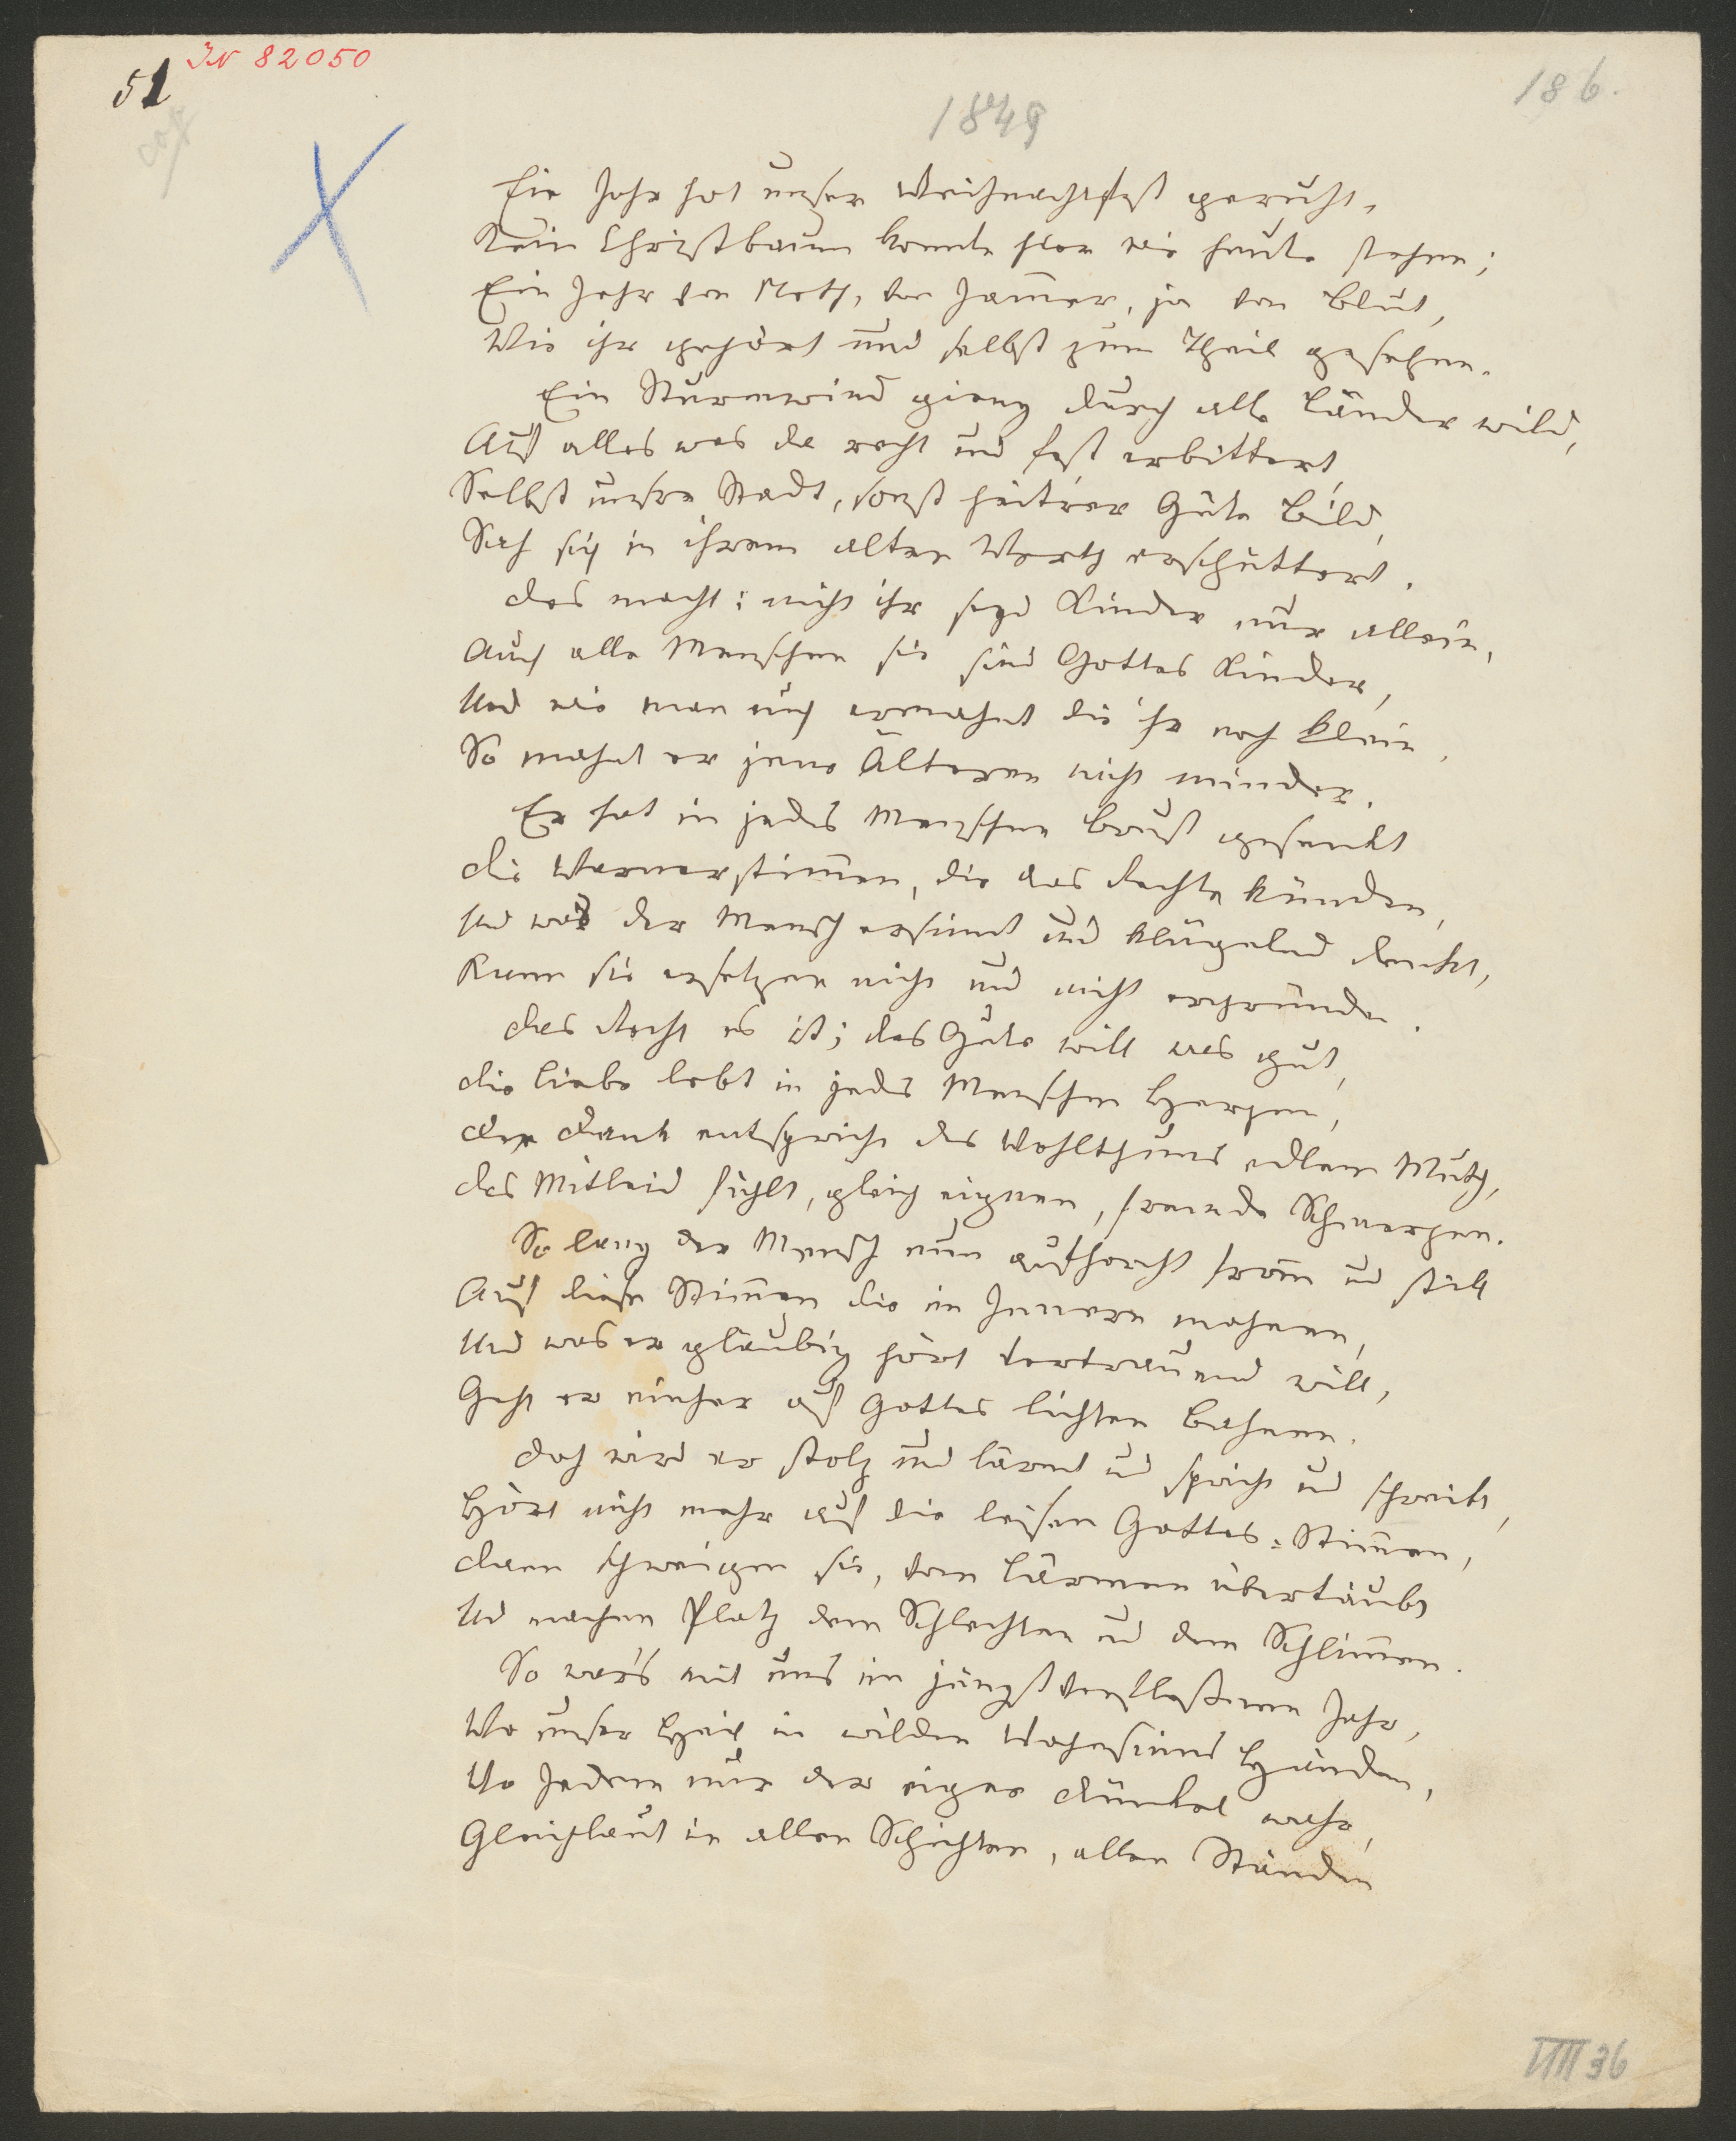 51 IN 82050
186.
1849
Ein Jahr hat unser Weihnachtsfest geruht,
Kein Christbaum konnte hier wie heute stehen;
Ein Jahr von Noth, von Jam̄er, ja von Blut,
Wie ihr gehört und selbst zum Theil gesehen.
Ein Sturmwind gieng durch alle Länder wild,
Auf alles was da recht und fest erbittert,
Selbst unsre Stadt, sonst heitrer Güte Bild,
Sah sich in ihrem alten Werth erschüttert.
Das macht: nicht ihr seyd Kinder nur allein,
Auch alle Menschen sie sind Gottes Kinder,
Und wie man euch ermahnt die ihr noch klein,
So mahnt er jene Älteren nicht minder.
Er hat in jedes Menschen Brust gesenkt
Die Warnerstim̄en, die das Rechte künden,
Und was der Mensch ersinnt und klügelnd denkt,
Kann sie ersetzen nicht und nicht ergründen.
Das Recht es ist; das Gute will was gut,
Die Liebe lebt in jedes Menschen Herzen,
Der Dank entspricht des Wohlthuns edlem Muth,
Das Mitleid fühlt, gleich eignen, fremde Schmerzen.
So lang der Mensch nun aufhorcht from̄ und still
Auf diese Stim̄en die im Innern mahnen,
Und was er gläubig hört vertrauend will,
Geht er einher auf Gottes lichten Bahnen.
Doch wird er stolz und lärmt und spricht und schreibt,
Hört nicht mehr auf die leisen Gottes-Stim̄en,
Dann schweigen sie, vom Lärmen übertäubt
Und machen Platz dem Schlechten und dem Schlim̄en.
So war's mit uns im jüngst verfloßenen Jahr,
Wo unser Heil in wilden Wahnsinns Händen,
Wo Jedem nur der eigne Dünkel wahr,
Gleichlaut in allen Schichten, allen Ständen
VIII 36